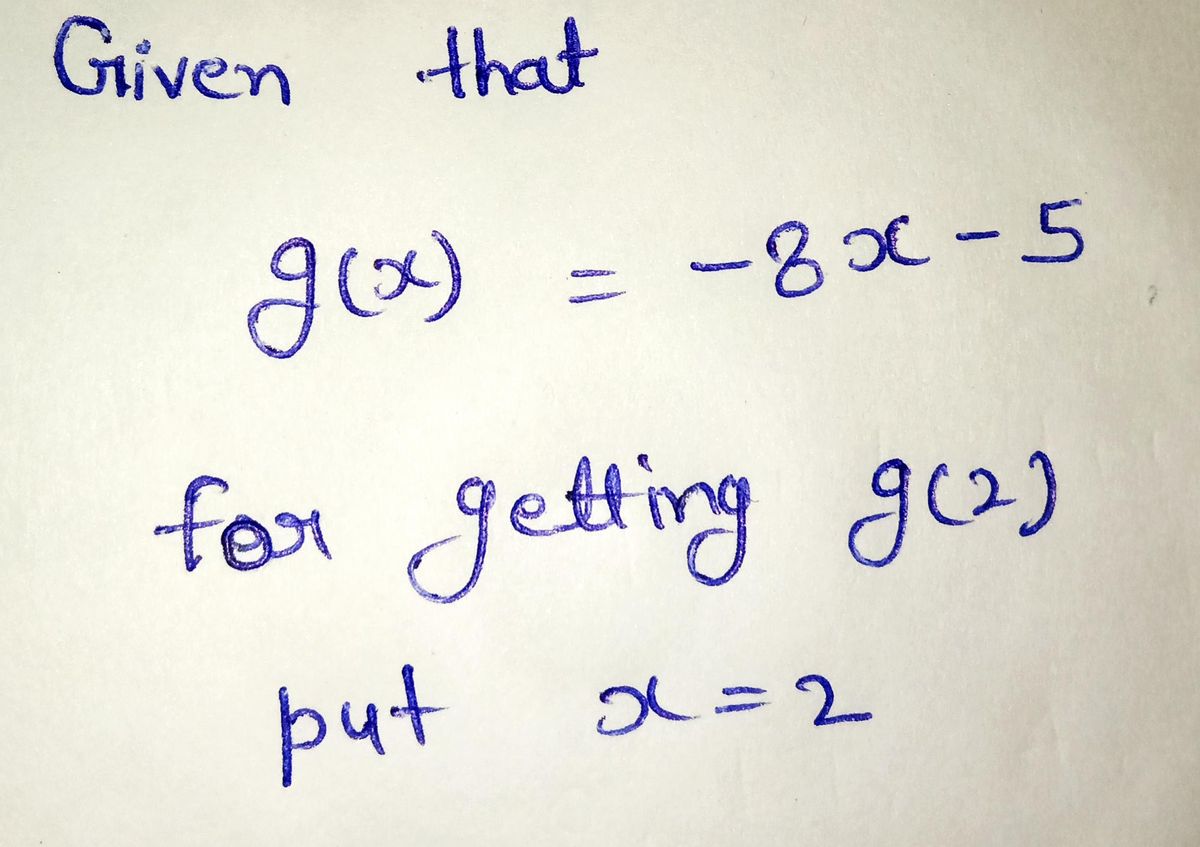 Given that
g(x) = -8x-5
for getting g(2)
put x=2